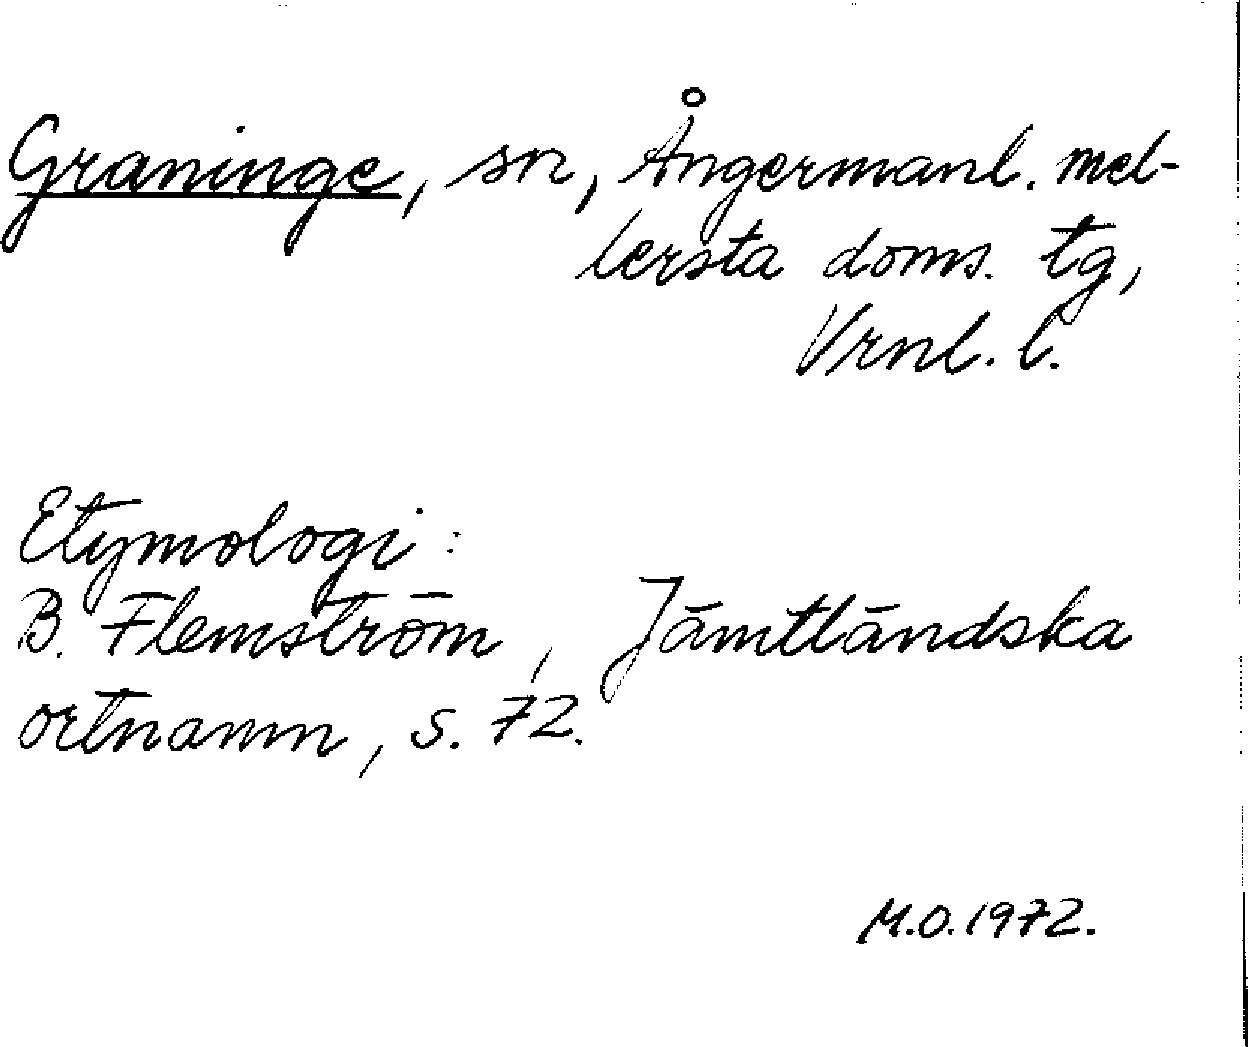 Graninge, sn, Ångermanl. mel-
lersta doms. tg,
Vrnl. l.
Etymologi:
B. Flemström, Jämtländska
ortnamn, s. 72.
M.O. 1972.